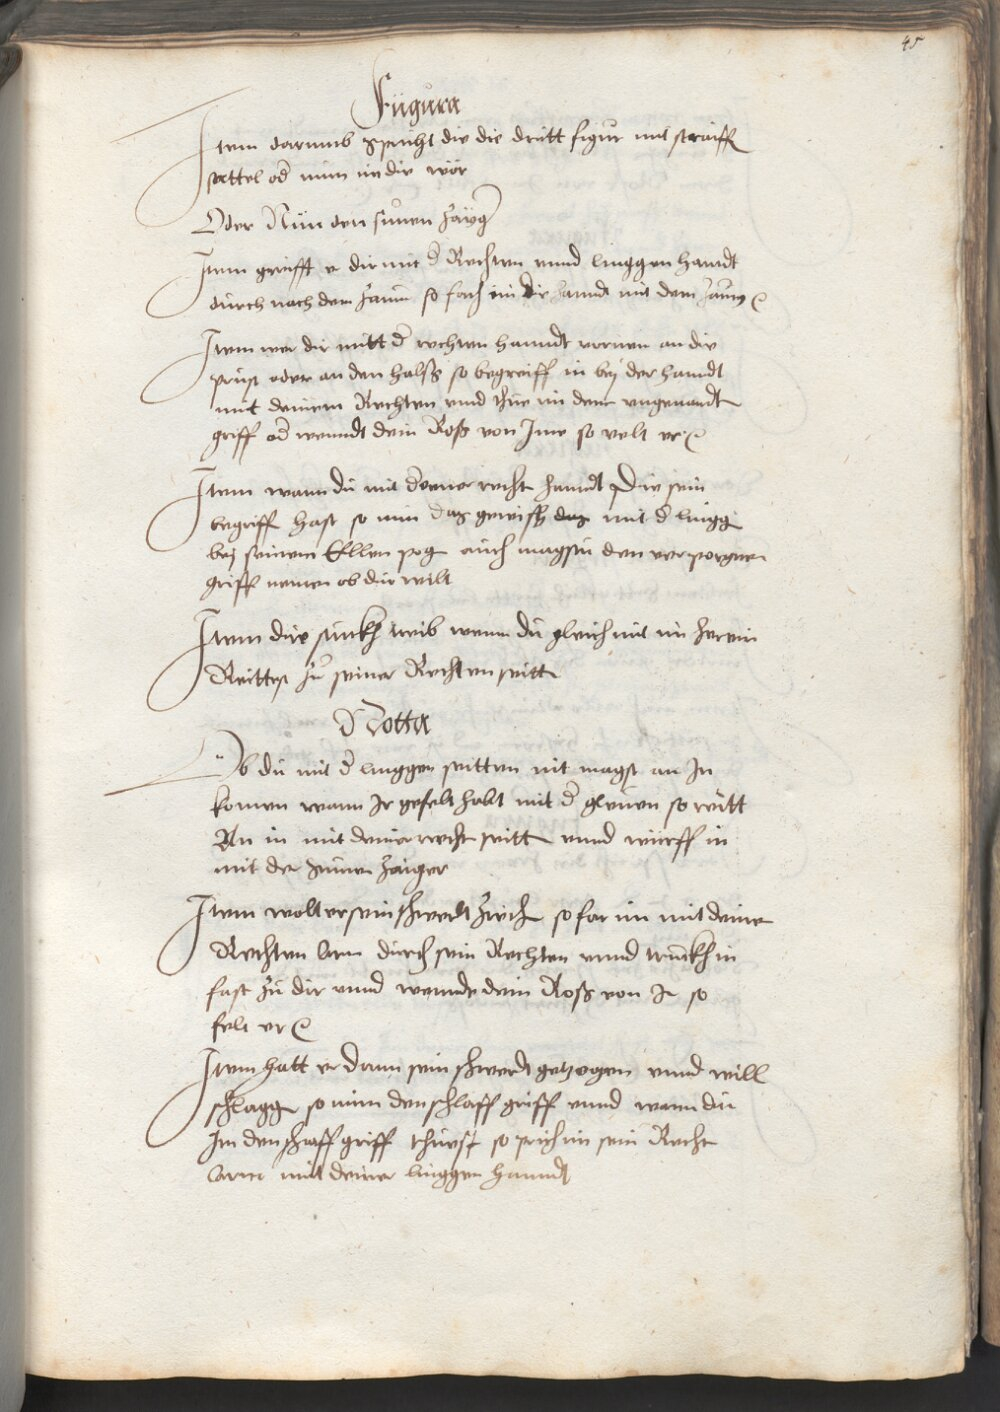 45
Figura
Item darumb spricht die die dritt figur mit straiff
sattel od nim im die wör
Oder Nim den sunen zaÿg
Item greifft er dir mit d Rechten vnnd linggen hanndt
durch nach dem zaum so fach im die hanndt mit dem zaum
Item wer dir mitt d rechten hanndt vornen an die
prust oder an den halsß so begreiff in beÿ der handt
mit deinem Rechten vnd thue im dene vngenandt
griff od wenndt dein Roß von Ime so velt er
Item wann du mit deiner recht hanndt Die sein
begriff hast so nim das gewisß das mit d lingg
beÿ seinem Ellen pog auch magstu den verporgnen
griff nemen ob du wilt
Item dise stuckh treib wenn du gleich mit im herein
Reittest zu seiner Rechten seitt
Notta
Ob du mit d linggen seitten nit magst an In
komen wann Ir gefelt habt mit d glenen so reitt
An in mit deiner recht seitt vnnd würff in
mit der sunen zaiger
Item wolt er sein schwerdt zieh so far im mit deine
Rechten Arm durch sein Rechten vnnd truckh in
fast zu dir vnnd wennde dein Roß von Im so
felt er
Item hatt er dann sein schwerdt getzogen vnnd will
schlagg so nim den schlaff griff vnnd wann du
Im den schlaff griff thuest so prich im sein Recht
Arm mit deiner linggen hanndt